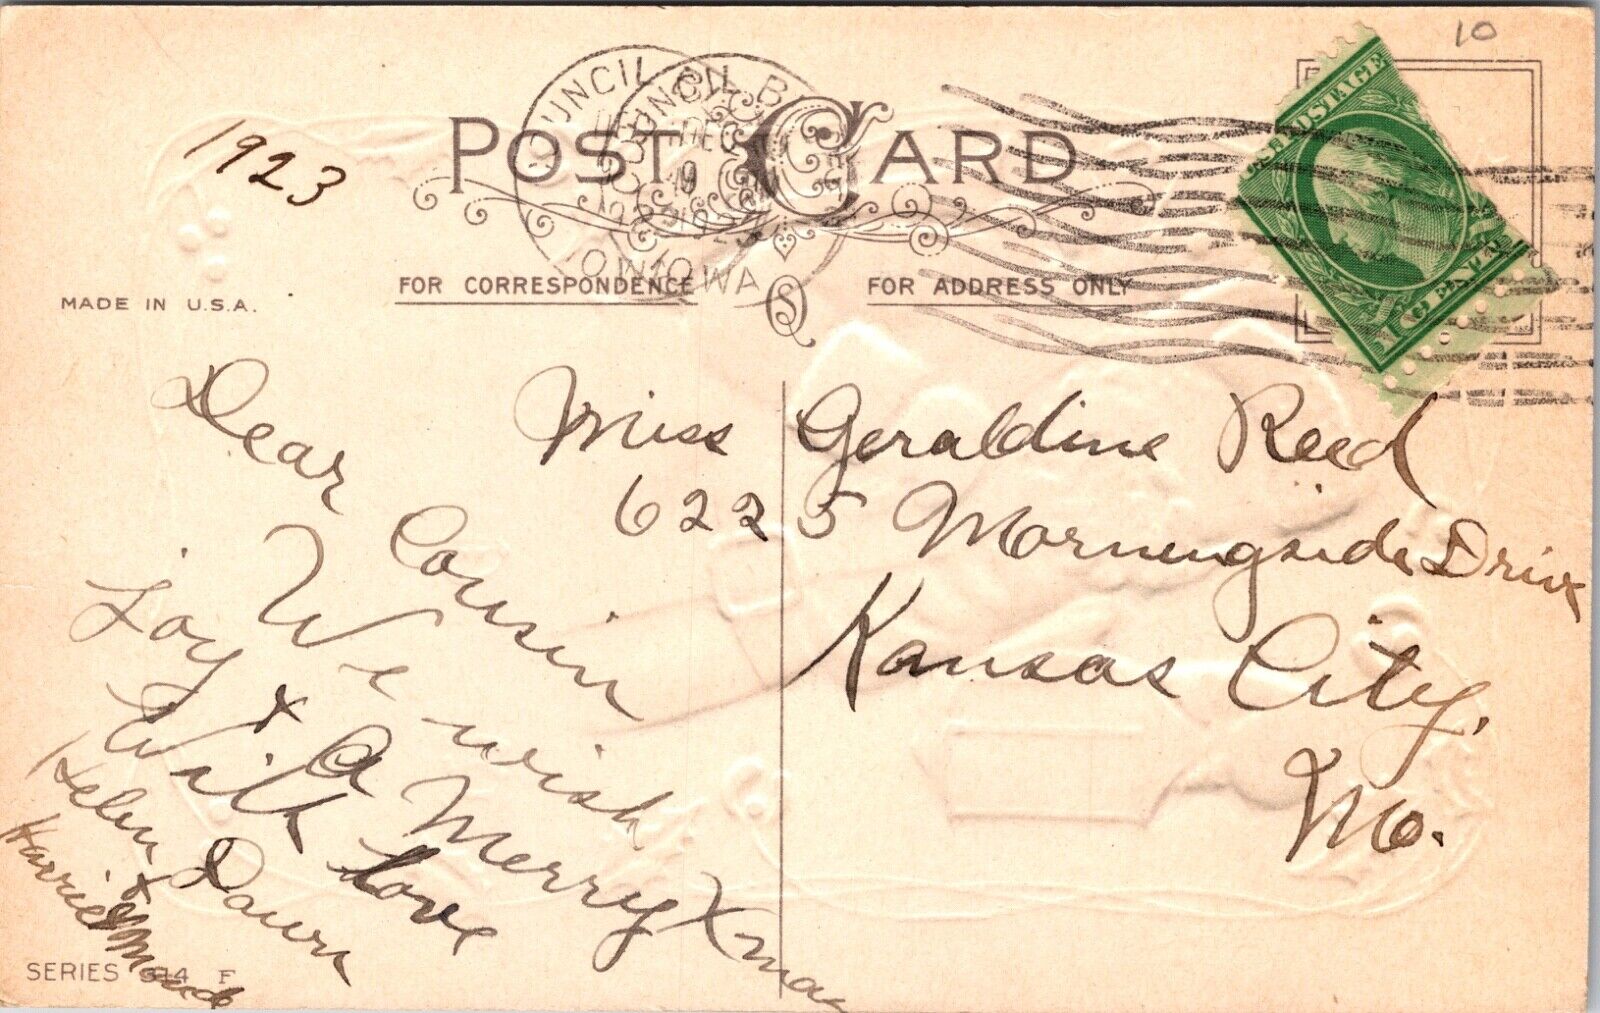 10
1923
POST CARD
COUNCIL BL
DEC
19
1923
IOWA
POSTAGE
CENT
MADE IN U.S.A.
FOR CORRESPONDENCE
FOR ADDRESS ONLY
Dear Cousin
We wish
Joy & A Merry Xmas
With Love
Helen Dawn
Harriet & Maude
Miss Geraldine Reed
6225 Morningside Drive
Kansas City,
Mo.
SERIES F